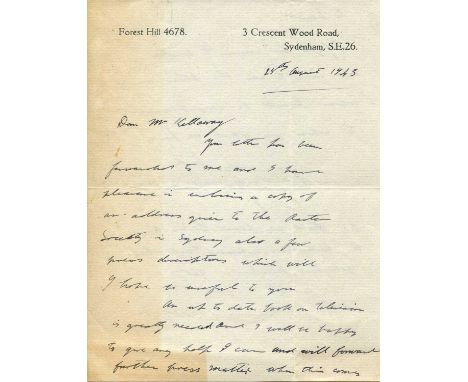 Forest Hill 4678.
3 Crescent Wood Road,
Sydenham, S.E.26.
August 1943
Dear Mr Kelloway
Your letter has been
forwarded to me and I have
pleasure in enclosing a copy of
an address given to the
Society in Sydney also a few
press descriptions which will
I hope be useful to you
An up to date book on Television
is greatly needed and I will be happy
to give any help I can and will forward
further press matter when this comes